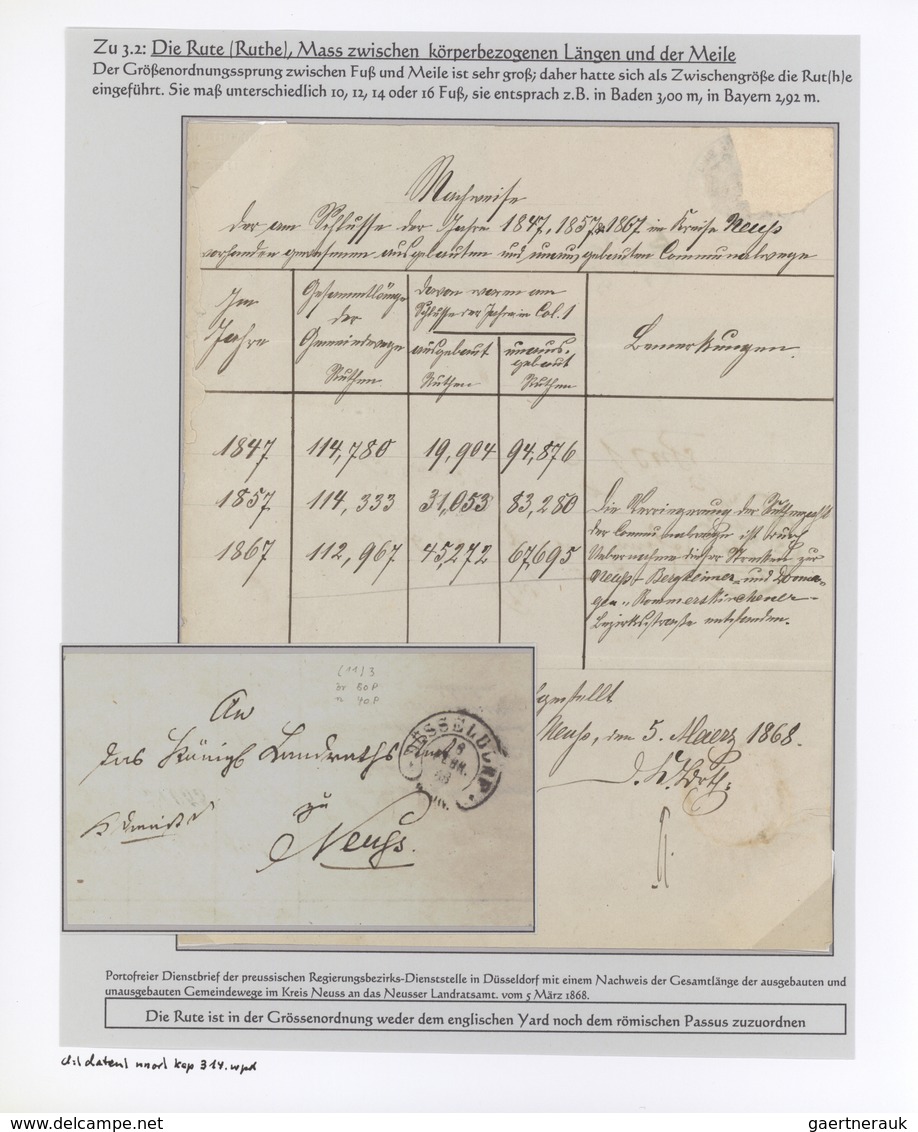 Zu 3.2: Die Rute (Ruthe), Mass zwischen körperbezogenen Längen und der Meile
Der Größenordnungssprung zwischen Fuß und Meile ist sehr groß; daher hatte sich als Zwischengröße die Rut(h)e
eingeführt. Sie maß unterschiedlich 10, 12, 14 oder 16 Fuß, sie entsprach z.B. in Baden 3,00 m, in Bayern 2,92 m.
Nachweise
der am Schlusse der Jahre 1847, 1857 & 1867 im Kreise Neuss
vorhanden gewesenen ausgebauten und unausgebauten Communalwege
Im
Jahre
Gesammtlänge
der
Gemeindewege
Ruthen
davon waren am
Schlusse der Jahre in Col. 1
ausgebaut
Ruthen
unaus-
gebaut
Ruthen
Bemerkungen.
1847 114,780 19,904 94,876
1857 114,333 31,053 83,280
1867 112,967 45,272 67,695
Die Verringerung der Ruthenzahl
der Communalwege ist durch
Uebernahme dieser Strecken zur
Neuss-Bergheimer- und Dorma-
gen-Rommerskirchener-
Bezirksstraße entstanden.
gestellt
Neuss, den 5. Maerz 1868.
(11) 3
80P
40P
An
das Königl Landraths
zu
Neuss.
DÜSSELDORF
Portofreier Dienstbrief der preussischen Regierungsbezirks-Dienststelle in Düsseldorf mit einem Nachweis der Gesamtlänge der ausgebauten und
unausgebauten Gemeindewege im Kreis Neuss an das Neusser Landratsamt. vom 5 März 1868.
Die Rute ist in der Grössenordnung weder dem englischen Yard noch dem römischen Passus zuzuordnen
d:\daten\nnor\kap 314.wpd
gaertnerauk